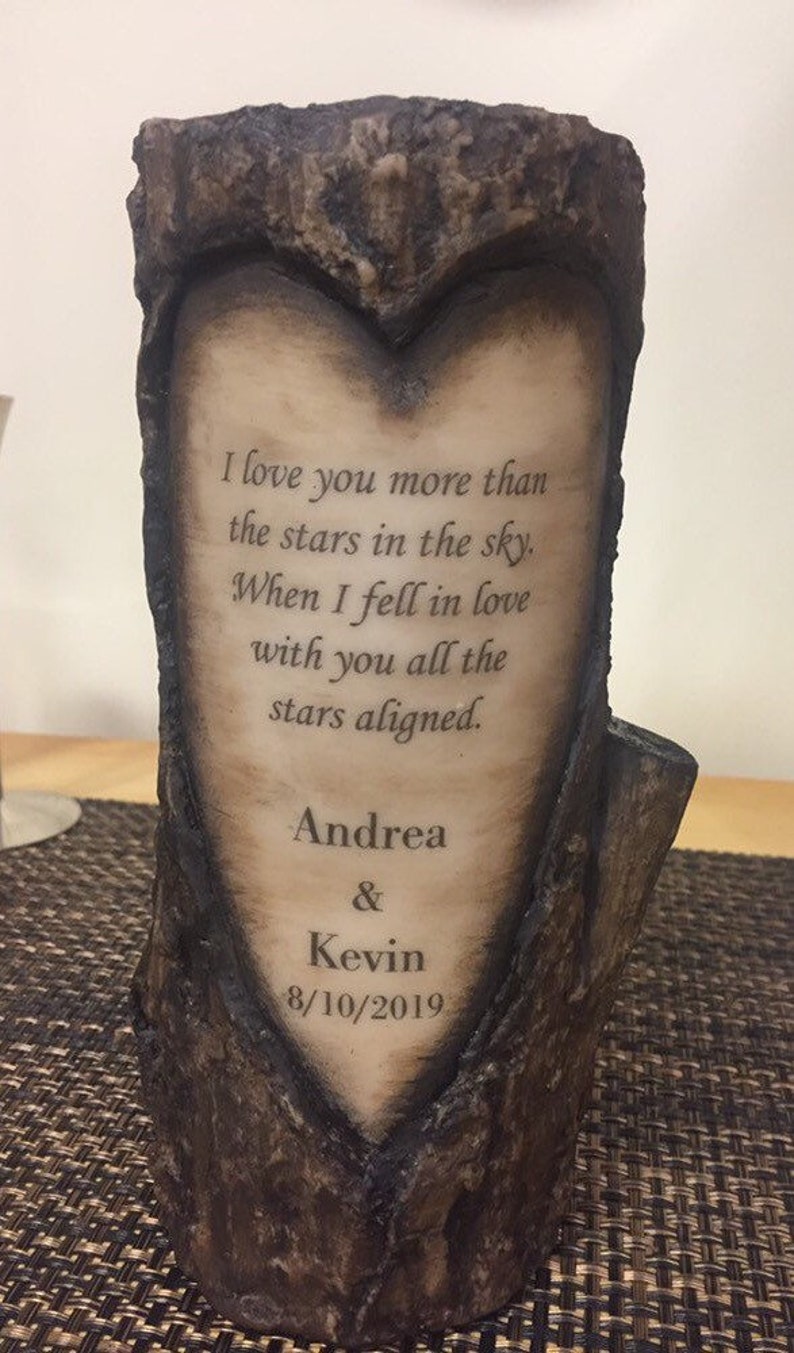 I love you more than
the stars in the sky.
When I fell in love
with you all the
stars aligned.
Andrea
&
Kevin
8/10/2019